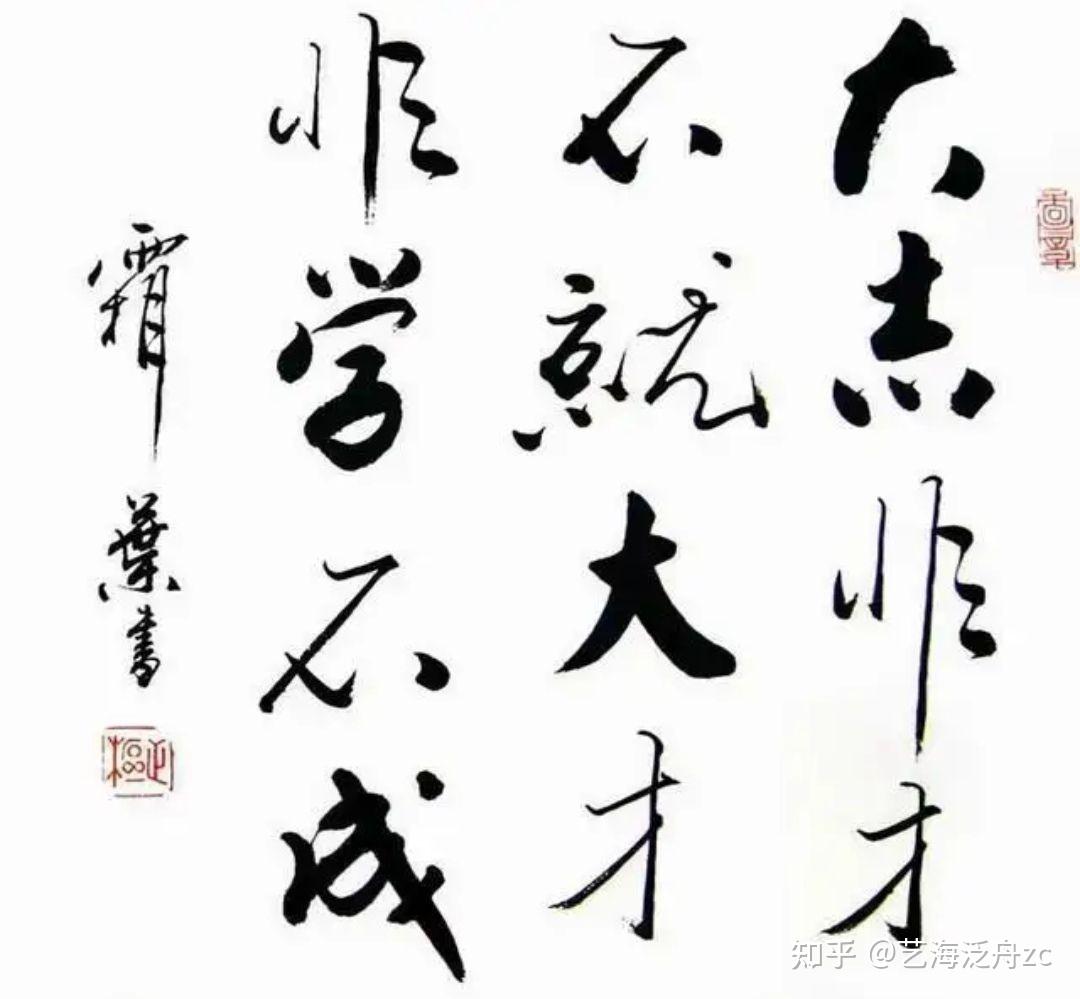 大志非才
不就大才
非学不成
霜葉書
知乎 @艺海泛舟zc